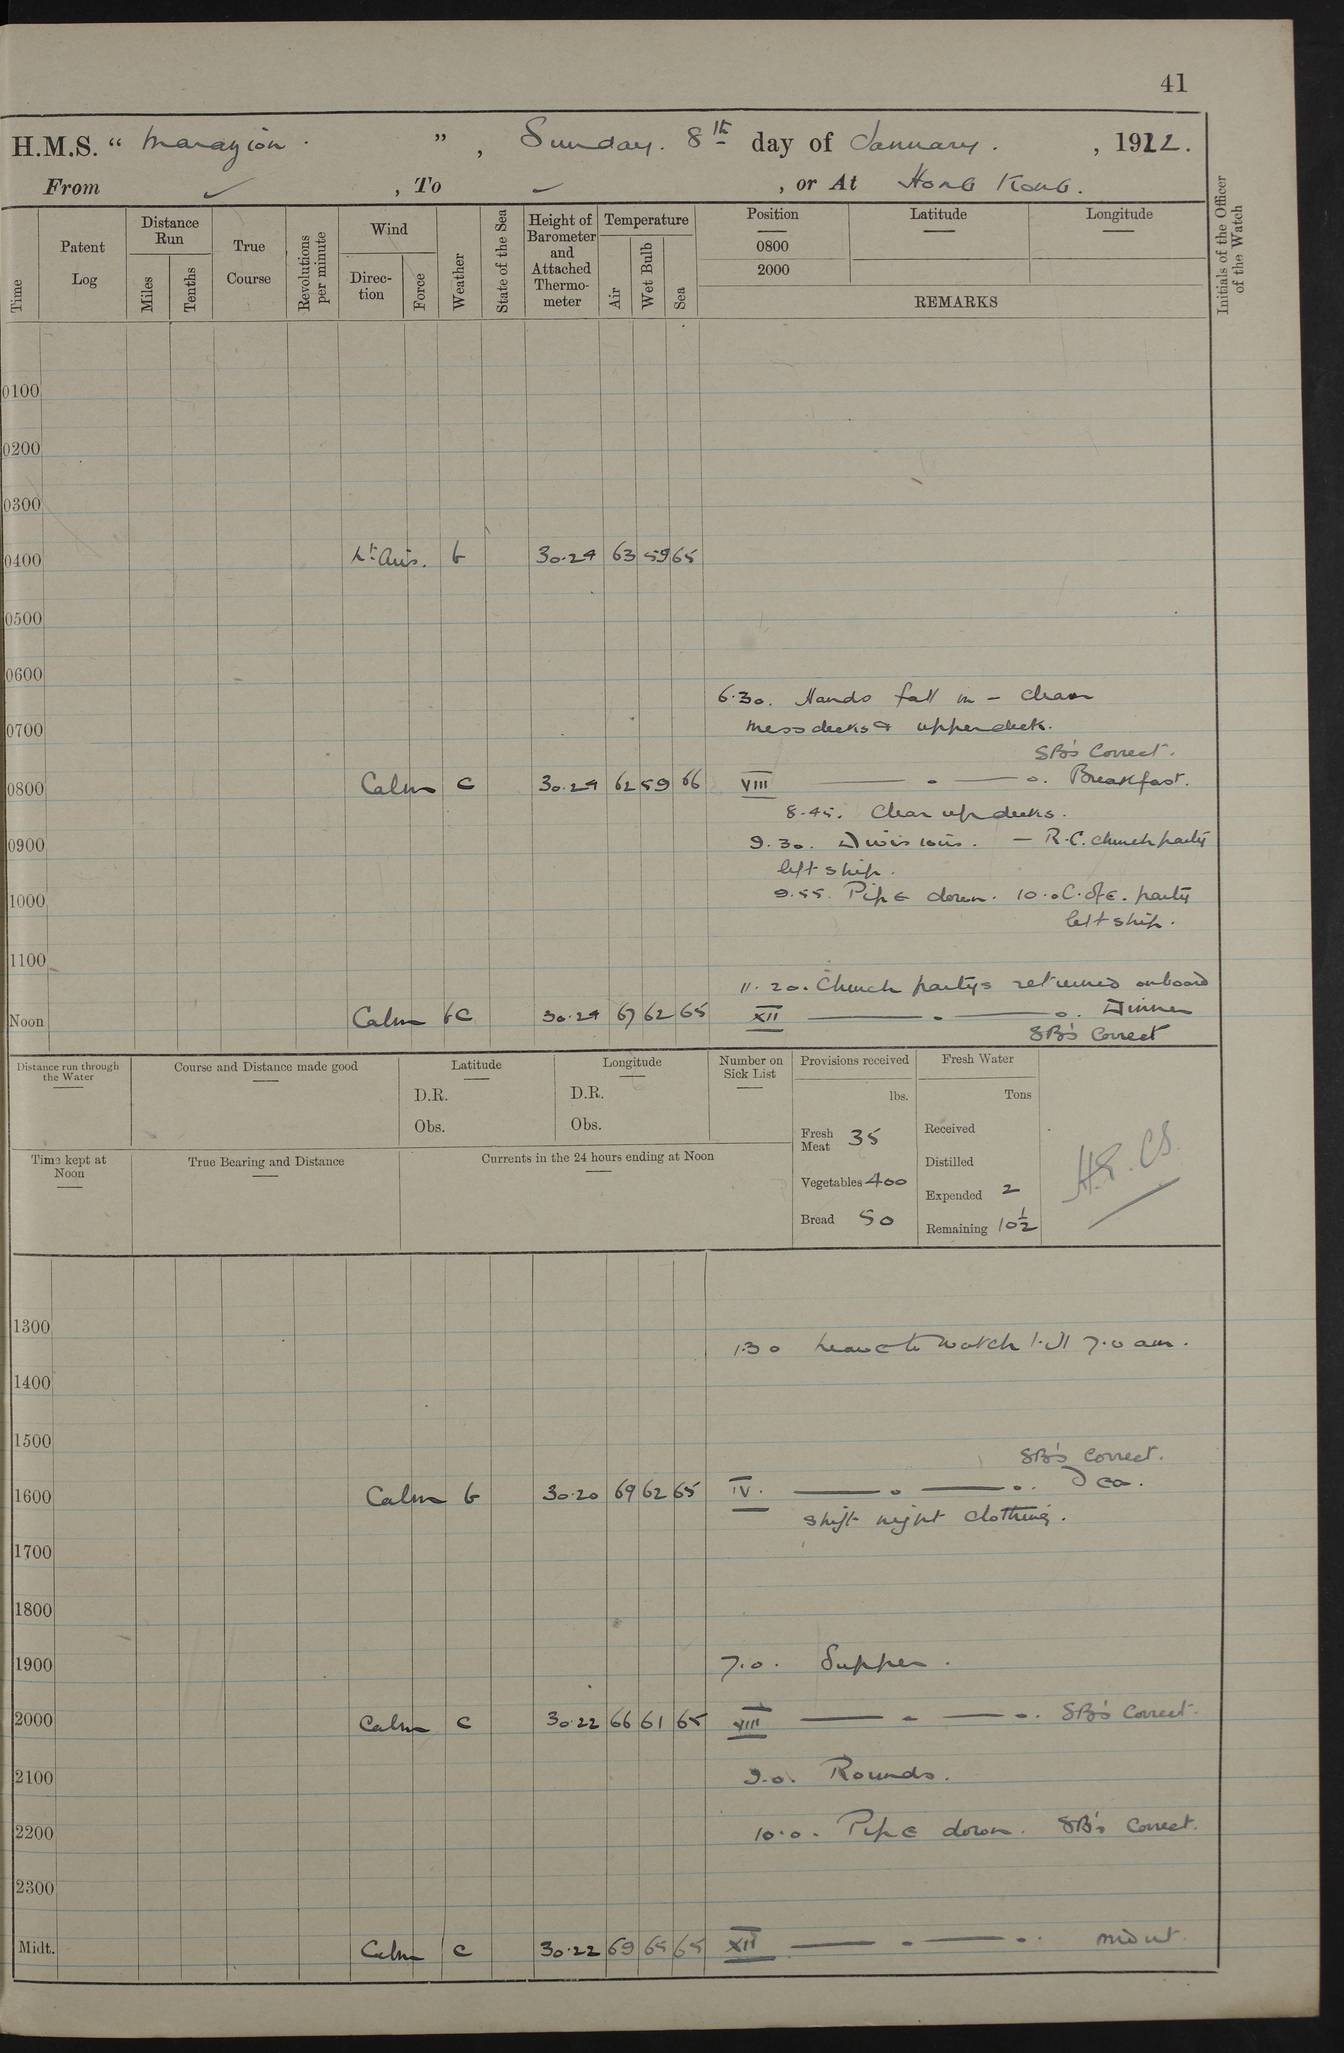 41
H.M.S. " Marazion. ", Sunday. 8th day of January. , 1922.
From ✓ , To ✓ , or At Hong Kong.
Time
Patent Log
Distance Run
Miles
Tenths
True Course
Revolutions per minute
Wind
Direction
Force
Weather
State of the Sea
Height of Barometer and Attached Thermometer
Temperature
Air
Wet Bulb
Sea
Position
0800
2000
Latitude
Longitude
REMARKS
Initials of the Officer of the Watch
0100
0200
0300
0400 Lt. Airs. b 30.29 63 59 65
0500
0600
6.30. Hands fall in - clean
0700 mess decks & upper deck.
SB's Correct.
0800 Calm c 30.29 62 59 66 VIII ——— o ——— o. Breakfast.
8.45. Clear up decks.
0900 9.30. Divisions. — R.C. church party
left ship.
1000 9.55. Pipe down. 10.0 C. of E. party
left ship.
1100
11.20. Church partys returned onboard
Noon Calm bc 30.29 67 62 65 XII ——— o ——— o. Dinner
SB's Correct
Distance run through the Water
Course and Distance made good
Latitude
D.R.
Obs.
Longitude
D.R.
Obs.
Number on Sick List
Provisions received
lbs.
Fresh Meat 35
Vegetables 400
Bread 50
Fresh Water
Tons
Received
Distilled
Expended 2
Remaining 10½
Time kept at Noon
True Bearing and Distance
Currents in the 24 hours ending at Noon
1300
1.30 Leave to watch till 7.0 am.
1400
1500
SB's Correct.
1600 Calm b 30.20 69 62 65 IV. ——— o ——— o. Tea.
Shift night clothing.
1700
1800
1900 7.0. Supper.
2000 Calm c 30.22 66 61 65 VIII ——— o ——— o. SB's Correct.
2100 9.0. Rounds.
2200 10.0. Pipe down. SB's Correct.
2300
Midt. Calm c 30.22 69 65 65 XII ——— o ——— o. midnt.